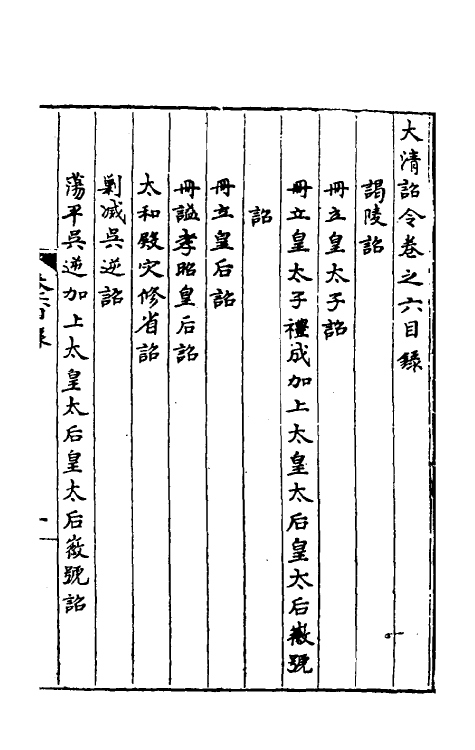 大清詔令卷之六目錄
謁陵詔
冊立皇太子詔
冊立皇太子禮成加上太皇太后皇太后徽號
詔
冊立皇后詔
冊諡孝昭皇后詔
太和殿灾修省詔
剿滅吳逆詔
蕩平吳逆加上太皇太后皇太后徽號詔